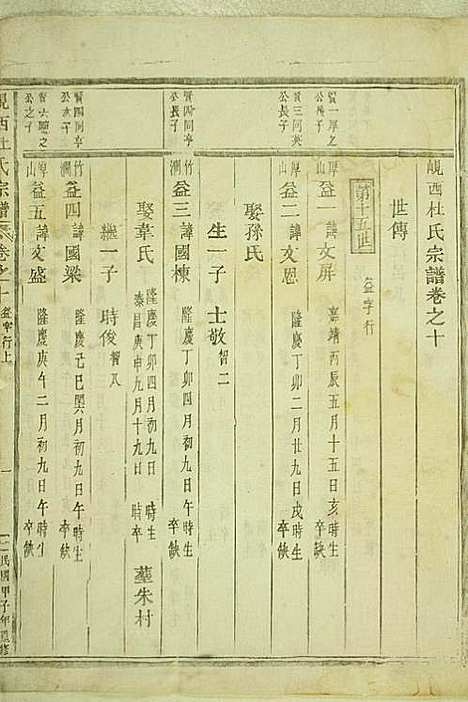 峴西杜氏宗譜卷之十
世傳
第十五世 益字行
賢一厚之公長子 厚山 益一 諱文屏 嘉靖丙辰五月十五日亥時生 卒缺
賢三同英公長子 厚山 益二 諱文恩 隆慶丁卯二月廿九日戌時生 卒缺
娶孫氏
生一子 士敬 智二
賢四同亭公長子 竹澗 益三 諱國棟 隆慶丁卯四月初九日 時生 卒缺
娶韋氏 隆慶丁卯四月初九日 時生 泰昌庚申九月十九日 時卒 墓朱村
繼一子 時俊 智八
賢四同亭公次子 竹澗 益四 諱國梁 隆慶己巳閏月初九日午時生 卒缺
公之子 厚山 益五 諱文盛 隆慶庚午二月初九日午時生 卒缺
峴西杜氏宗譜 卷之十 益字行上 一 民國甲子年重修